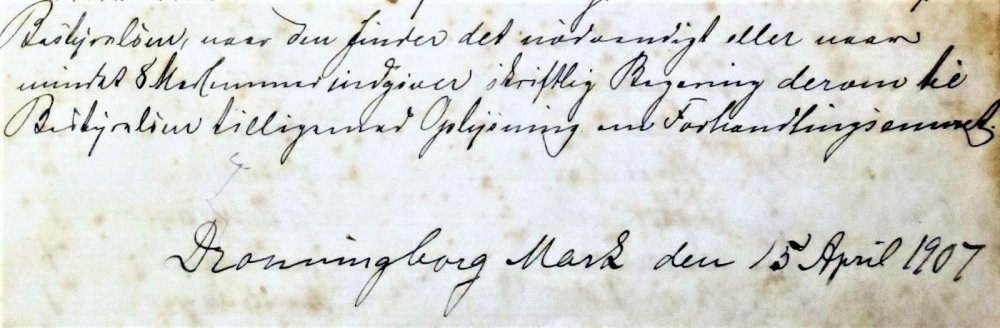 Bestyrelsen, naar den finder det nødvendigt eller naar
mindst 8 Medlemmer indgiver skriftlig Begæring derom til
Bestyrelsen tilligemed Oplysning om Forhandlingsemnet.
Dronningborg Mark den 15 April 1907